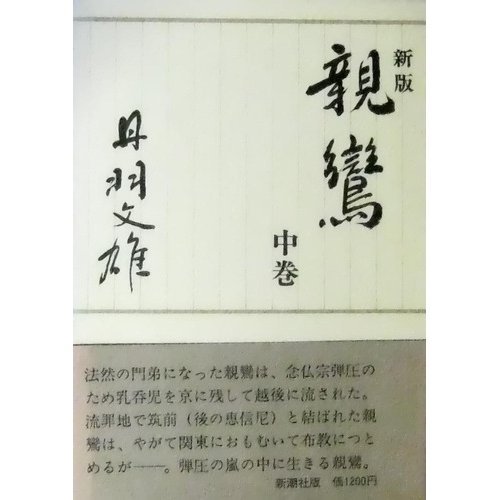 新版
親鸞
中巻
丹羽文雄
法然の門弟になった親鸞は、念仏宗弾圧の
ため乳呑児を京に残して越後に流された。
流罪地で筑前（後の恵信尼）と結ばれた親
鸞は、やがて関東におもむいて布教につと
めるが──。弾圧の嵐の中に生きる親鸞。
新潮社版　価1200円